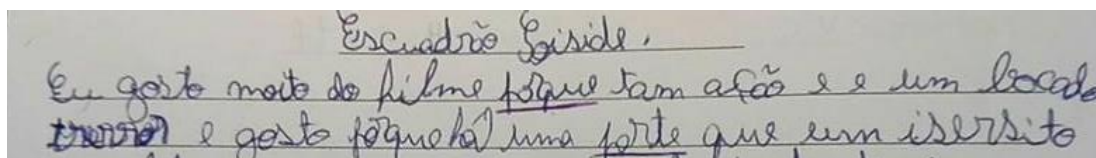 Escuadrão Soiside.
Eu gosto moito do filme porque tam ação e e um bocado
terror e gosto porque há uma parte que um isersito